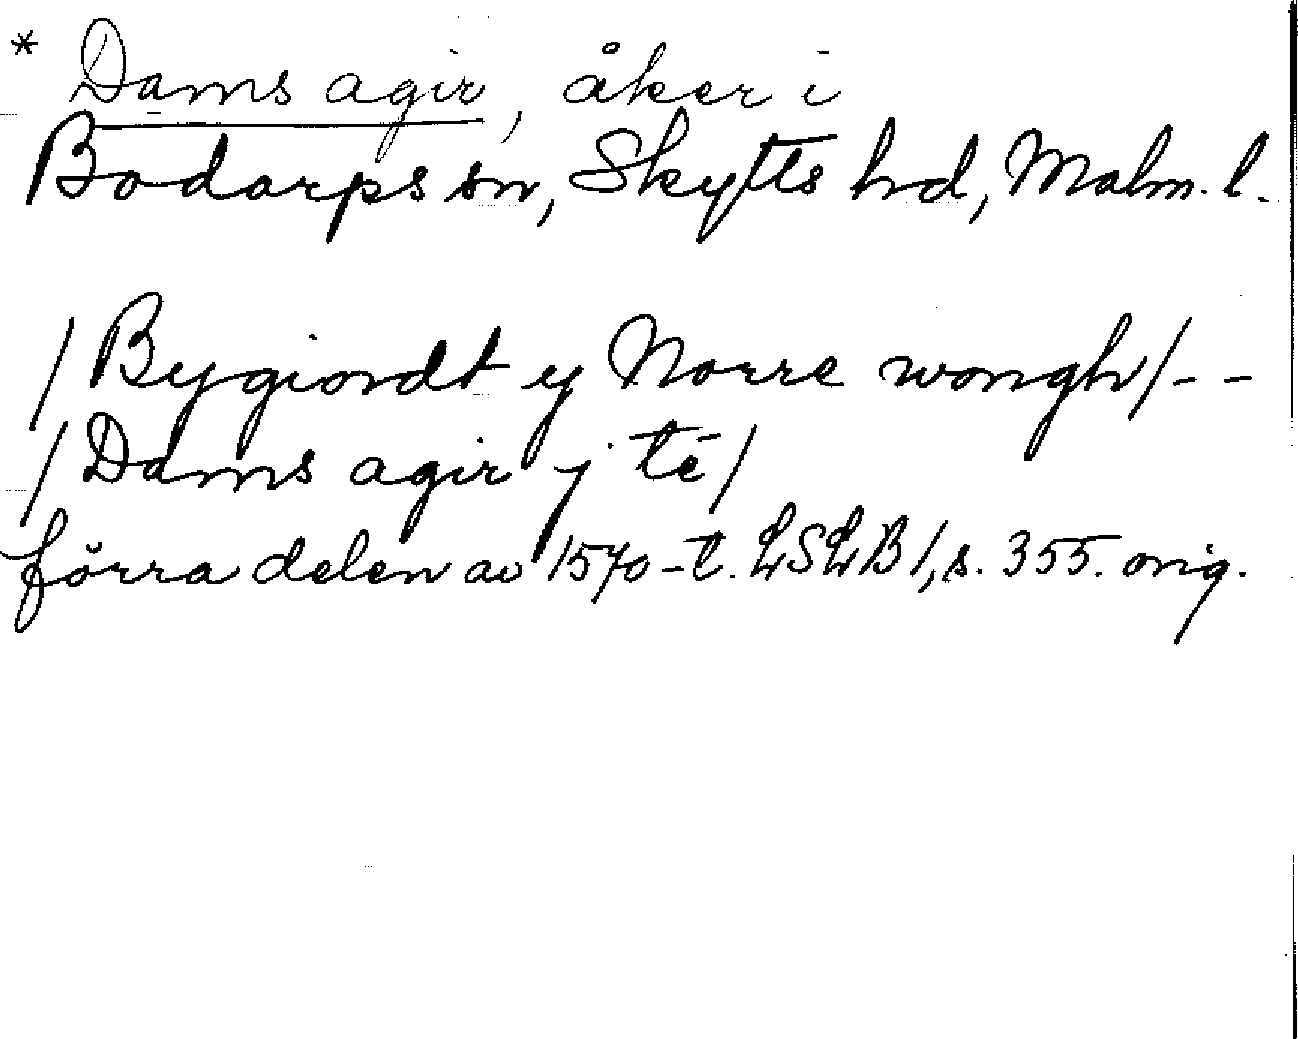 * Dams agir, åker i
Bodarps sn, Skytts hd, Malm. l.
/ Bygiordt y Norre wongh / - -
/ Dams agir j tē /
förra delen av 1570-t. LSLB 1, s. 355. orig.